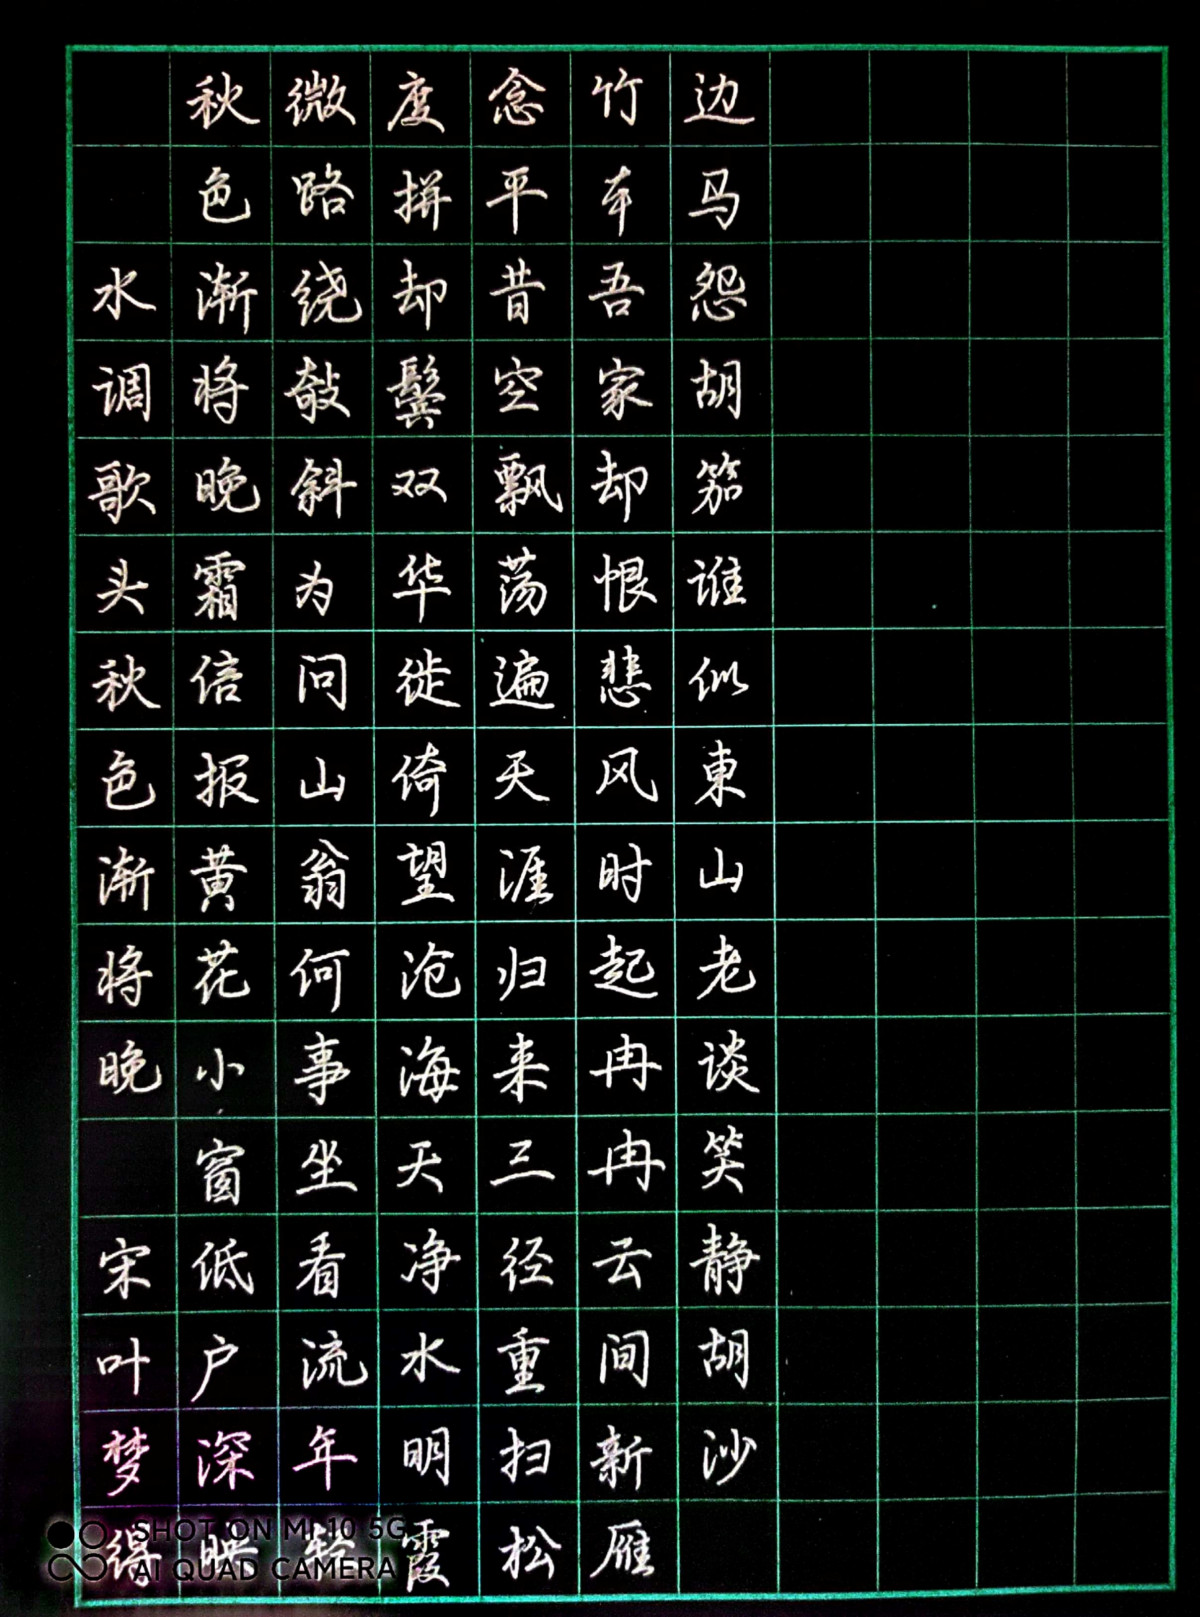 水调歌头秋色渐将晚 宋叶梦得
秋色渐将晚霜信报黄花小窗低户深映
微路绕敧斜为问山翁何事坐看流年轻
度拼却鬓双华徙倚望沧海天净水明霞
念平昔空飘荡遍天涯归来三径重扫松
竹本吾家却恨悲风时起冉冉云间新雁
边马怨胡笳谁似東山老谈笑静胡沙
SHOT ON MI 10 5G
AI QUAD CAMERA